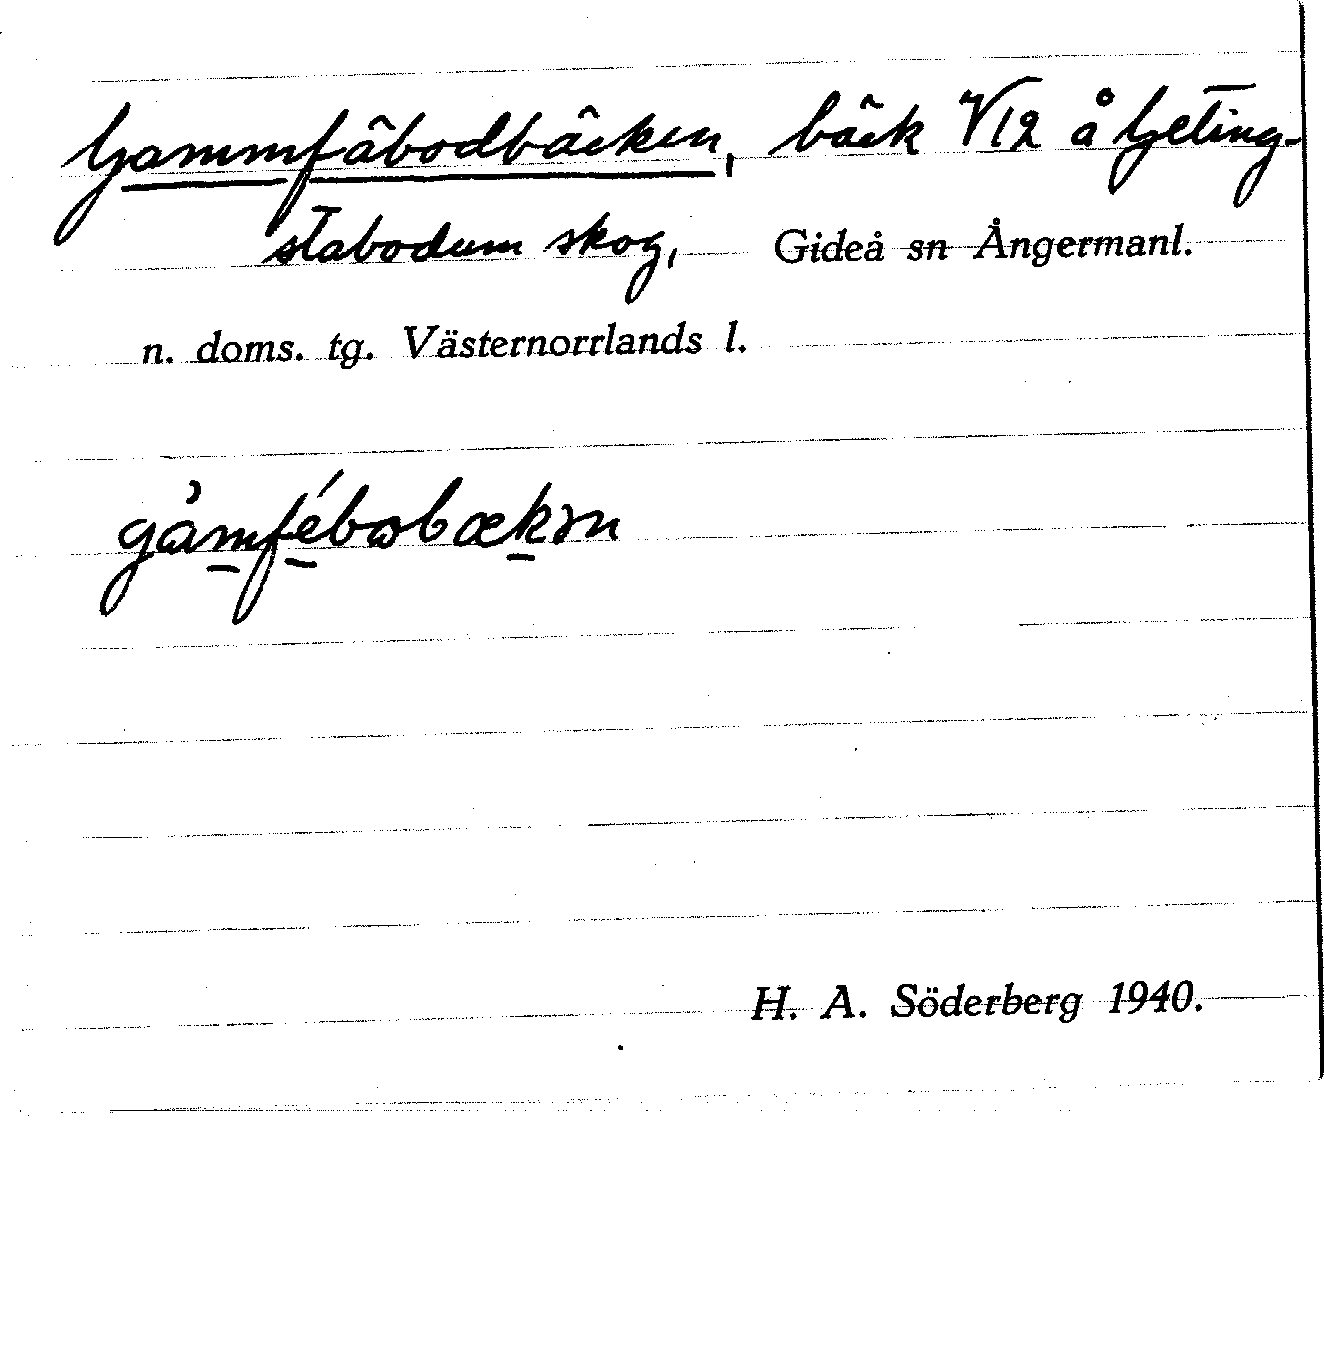 Gammfäbodbäcken, bäck V12 å Geting-
stabodum skog, Gideå sn Ångermanl.
n. doms. tg. Västernorrlands l.
H. A. Söderberg 1940.